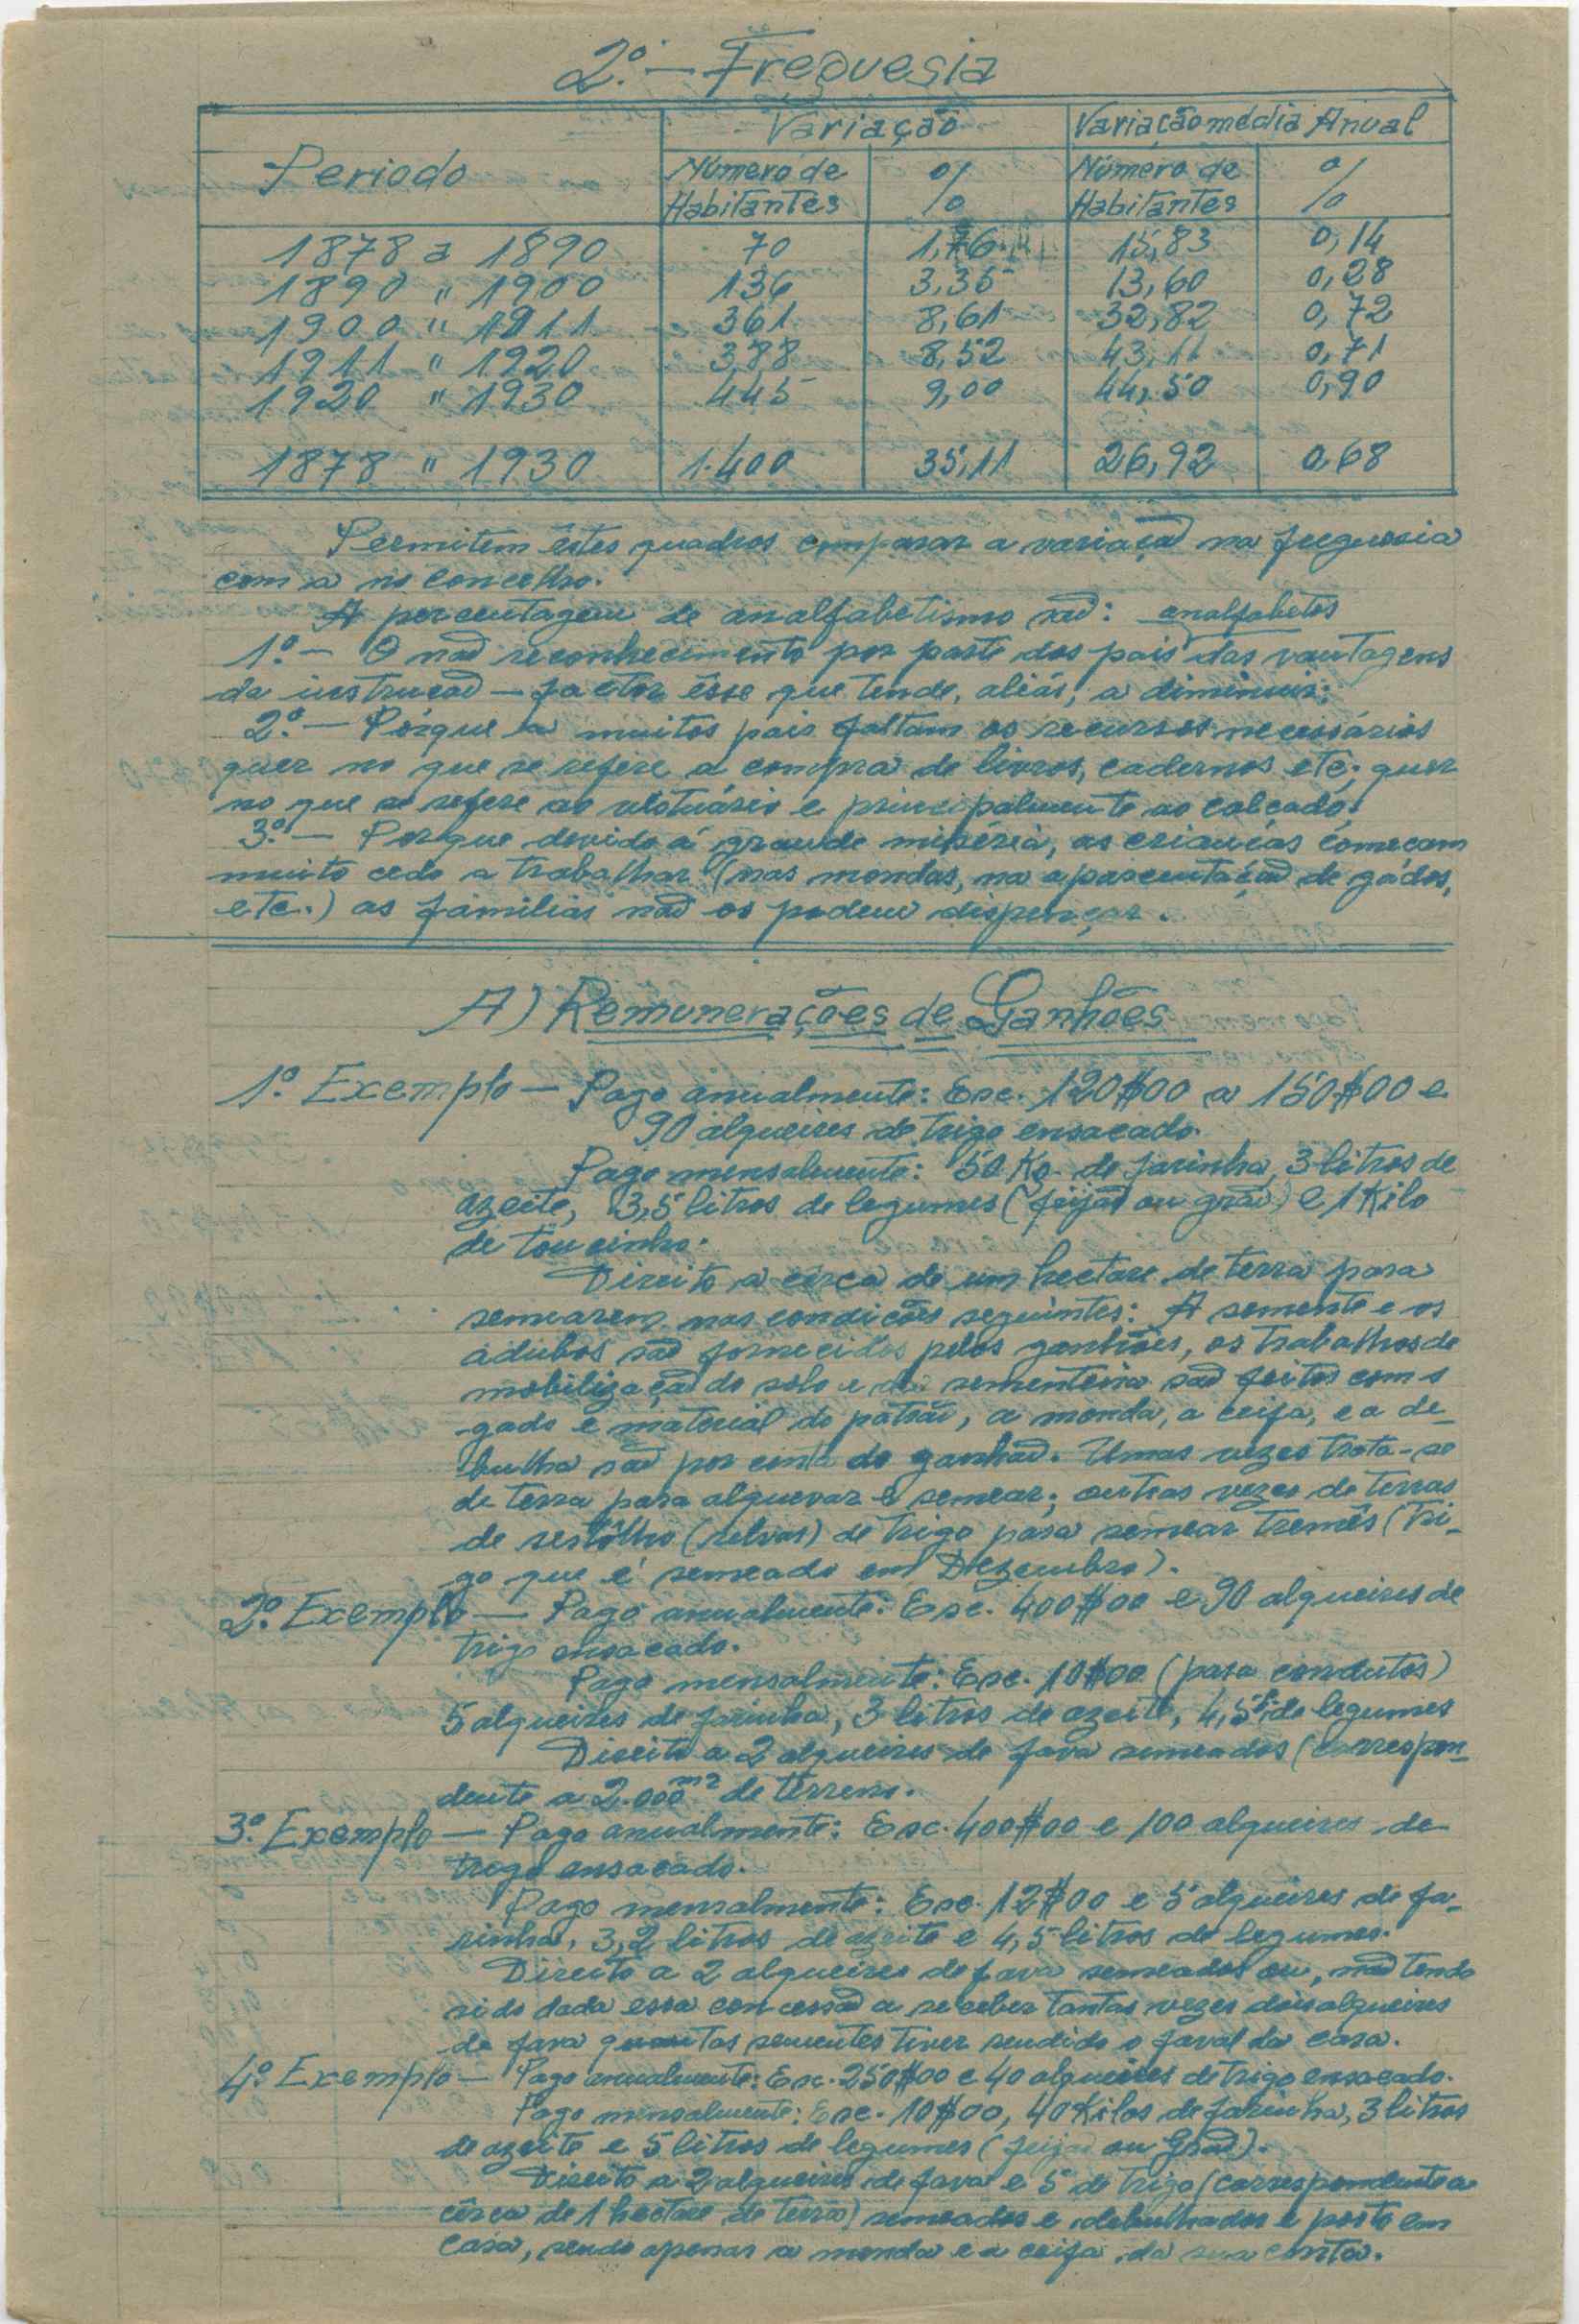 2º. — Freguesia
Periodo Variação Variação média Anual
Número de Habitantes % Número de Habitantes %
1878 a 1890 70 1,76 15,83 0,14
1890 " 1900 136 3,35 13,60 0,28
1900 " 1911 361 8,61 32,82 0,72
1911 " 1920 388 8,52 43,11 0,71
1920 " 1930 445 9,00 44,50 0,90
1878 " 1930 1.400 35,11 26,92 0,68
Permitem êstes quadros comparar a variação na freguesia
com a no concelho.
A percentagem de analfabetismo são: analfabetos
1º. — O não reconhecimento por parte dos pais das vantagens
da instrução — factor êsse que tende, aliás, a diminuir;
2º. — Pórque a muitos pais faltam os recursos necessários
quer no que se refere a compra de livros, cadernos etc; quer
no que se refere ao vestuário e principalmente ao calçado;
3º. — Porque devido á grande miséria, as crianças começam
muito cedo a trabalhar (nas mondas, na apascentação de gados,
etc.) as familias não os podem dispençar.
A) Remunerações de Ganhões
1º. Exemplo — Pago anualmente: Esc. 120$00 a 150$00 e
90 alqueires de trigo ensacado.
Pago mensalmente: 50 Kg. de farinha, 3 litros de
azeite, 3,5 litros de legumes (feijão ou grão) e 1 Kilo
de toucinho.
Direito a cêrca de um hectare de terra para
semearem nas condições seguintes: A semente e os
adubos são fornecidos pelos ganhões, os trabalhos de
mobilização do solo e da sementeira são feitos com o
gado e material do patrão, a monda, a ceifa, e a de-
bulha são por conta do ganhão. Umas vezes trata-se
de terra para alquevar e semear; outras vezes de terras
de restôlho (relvas) de trigo para semear tremês (tri-
go que é semeado em Dezembro).
2º. Exemplo — Pago anualmente: Esc. 400$00 e 90 alqueires de
trigo ensacado.
Pago mensalmente: Esc. 10$00 (para condutos)
5 alqueires de farinha, 3 litros de azeite, 4,5 l. de legumes
Direito a 2 alqueires de fava semeados (correspon-
dente a 2.000 m2 de terreno.
3º. Exemplo — Pago anualmente: Esc. 400$00 e 100 alqueires de
trigo ensacado.
Pago mensalmente: Esc. 12$00 e 5 alqueires de fa-
rinha, 3,2 litros de azeite e 4,5 litros de legumes.
Direito a 2 alqueires de fava semeados ou, não tendo
sido dada essa concessão a receber tantas vezes dois alqueires
de fava quantas sementes tiver rendido o faval da casa.
4º. Exemplo — Pago anualmente: Esc. 250$00 e 40 alqueires de trigo ensacado.
Pago mensalmente: Esc. 10$00, 40 Kilos de farinha, 3 litros
de azeite e 5 litros de legumes (feijão ou Grão).
Direito a 2 alqueires de fava e 5 de trigo (correspondente a
cêrca de 1 hectare de terra) semeados e debulhados e posto em
casa, sendo apenas a monda e a ceifa da sua conta.